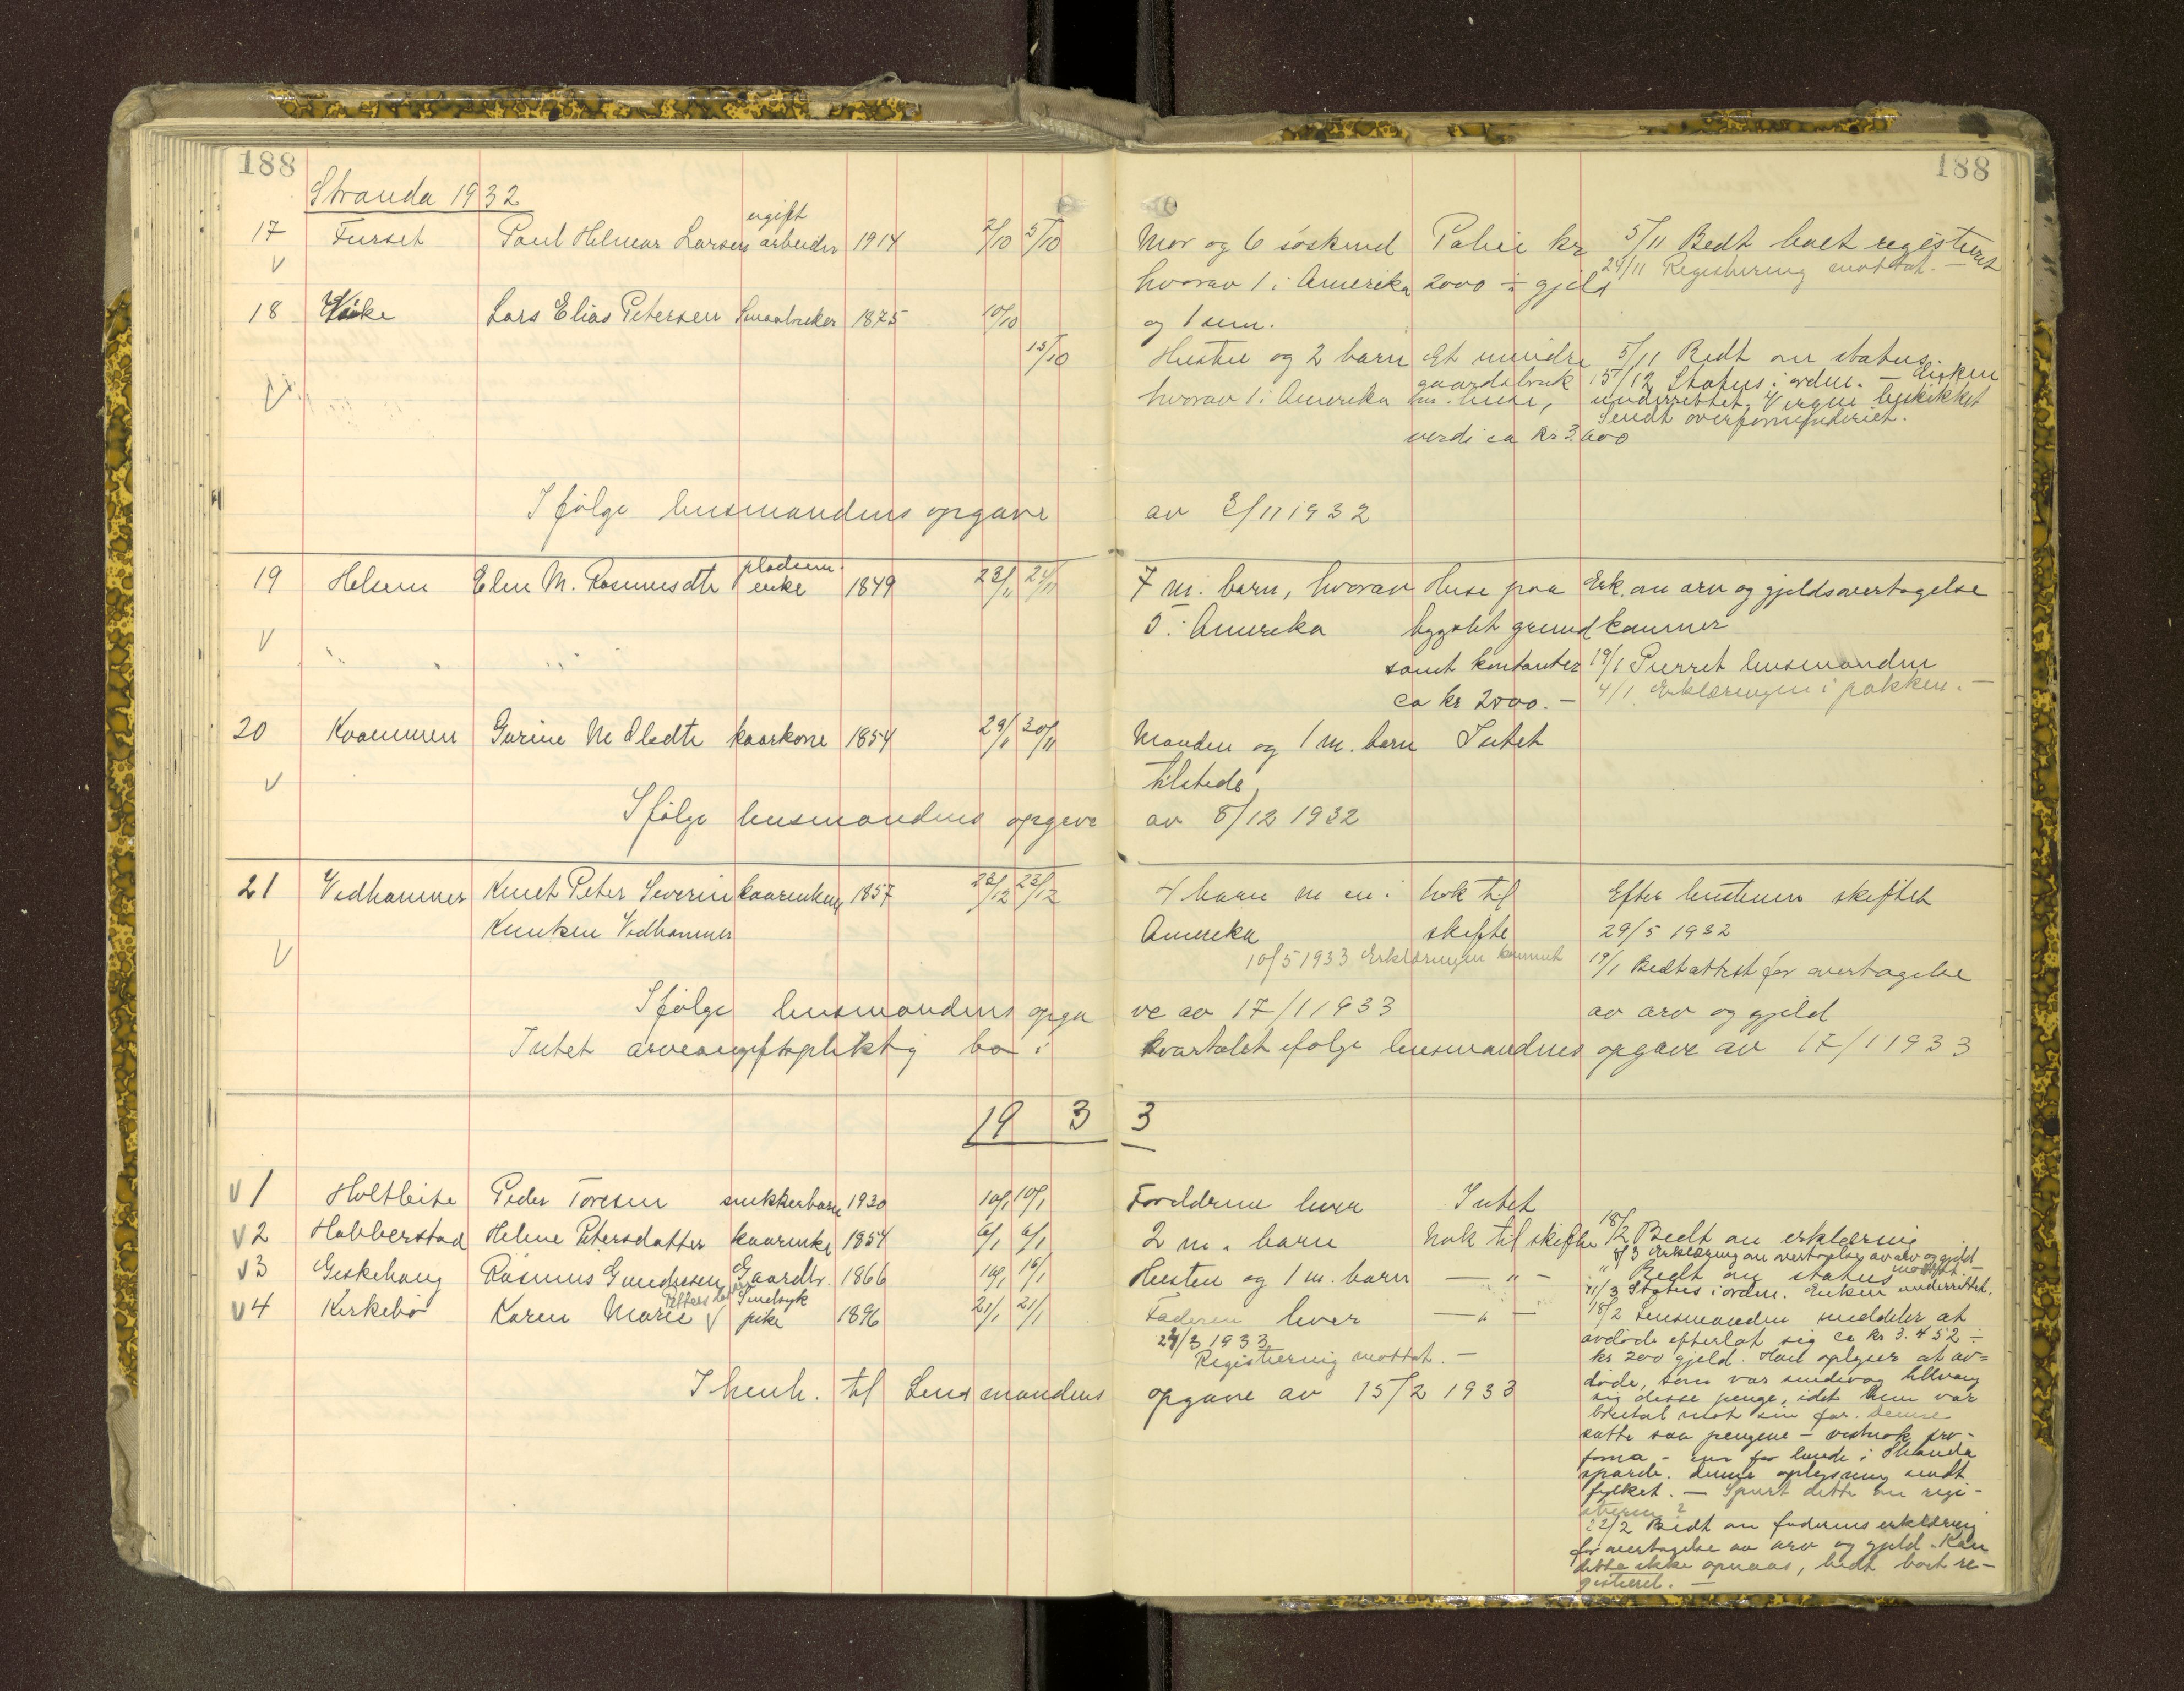 188
188
Stranda 1932
17 Furset Paul Helmar Larsen ugift arbeider 1914 2/10 5/10 Mor og 6 søskend Police kr 5/11 Bedt boet registeret
hvorav 1 i Amerika 2000 ÷ gjeld 24/11 Registrering mottat. —
18 Lars Elias Petersen Smaabruker 1875 10/10 og 1 sem.
15/10 Hustru og 2 barn Et mindre 5/11 Bedt om status
hvorav 1 i Amerika gaardsbruk m. huse, 15/12 Status i orden. — Enken
underrettet. Verge beskikket
verdi ca kr 3.600 Sendt overformynderiet.
I følge lensmandens opgave av 3/11 1932
19 Helsem Elen M. Rasmusdtr pladsenke 1849 23/11 24/11 7 m. barn, hvorav Huse paa Erk. om arv og gjeldsovertagelse
5 i Amerika bygslet grund kommer
samt kontanter 19/1 Purret lensmanden
ca kr 2000. — 4/1 Erklæringen i pakken. —
20 Kvammen Gurine M Olsdtr kaarkone 1854 29/11 30/11 Manden og 1 m. barn Intet
tilstede
I følge lensmandens opgave av 8/12 1932
21 Vedhammer Knut Peter Severin kaarenkem 1857 23/12 23/12 4 barn m en i Nok til Efter hustruen skiftet
Knutsen Vedhammer Amerika skifte 29/5 1932
10/5 1933 Erklæringen kommet 19/1 Bedt attest for overtagelse
I følge lensmandens opgave av 17/1 1933 av arv og gjeld
Intet arveavgiftspliktig bo i kvartalet ifølge lensmandens opgave av 17/1 1933
1933
1 Holtleite Peder Toresen snekkerbarn 1930 10/1 10/1 Forelderne lever Intet
2 Habberstad Heline Petersdatter kaarenke 1854 6/1 6/1 2 m. barn Nok til skifte 18/2 Bedt om erklæring
8/3 Erklæring om overtagelse av arv og gjeld mottatt —
3 Geskehaug Rasmus Gundersen Gaardbr. 1866 16/1 16/1 Hustru og 1 m. barn — " — " Bedt om status
21/3 Status i orden. Enken underrettet.
4 Kirkebø Karen Marie Pettersdatter Sindsyk pike 1896 21/1 21/1 Faderen lever — " — 18/2 Lensmanden meddeler at
24/3 1933 avdøde efterlot sig ca kr 3.452 ÷
Registrering mottat. — kr 200 gjeld. Han oplyser at av=
I henh. til Lensmandens opgave av 15/2 1933
døde, som var sindsvag tilvang
sig disse penge, idet hun var
brutal mot sin far. Denne
satte saa pengene — vistnok pro-
forma — inn for hende i Stranda
spareb. Denne oplysning sendt
fylket. — Spurt dette om regi-
streres?
22/2 Bedt om faderens erklæring
for overtagelse av arv og gjeld. Kan
dette ikke opnaas, bedt boet re-
gistreret. —